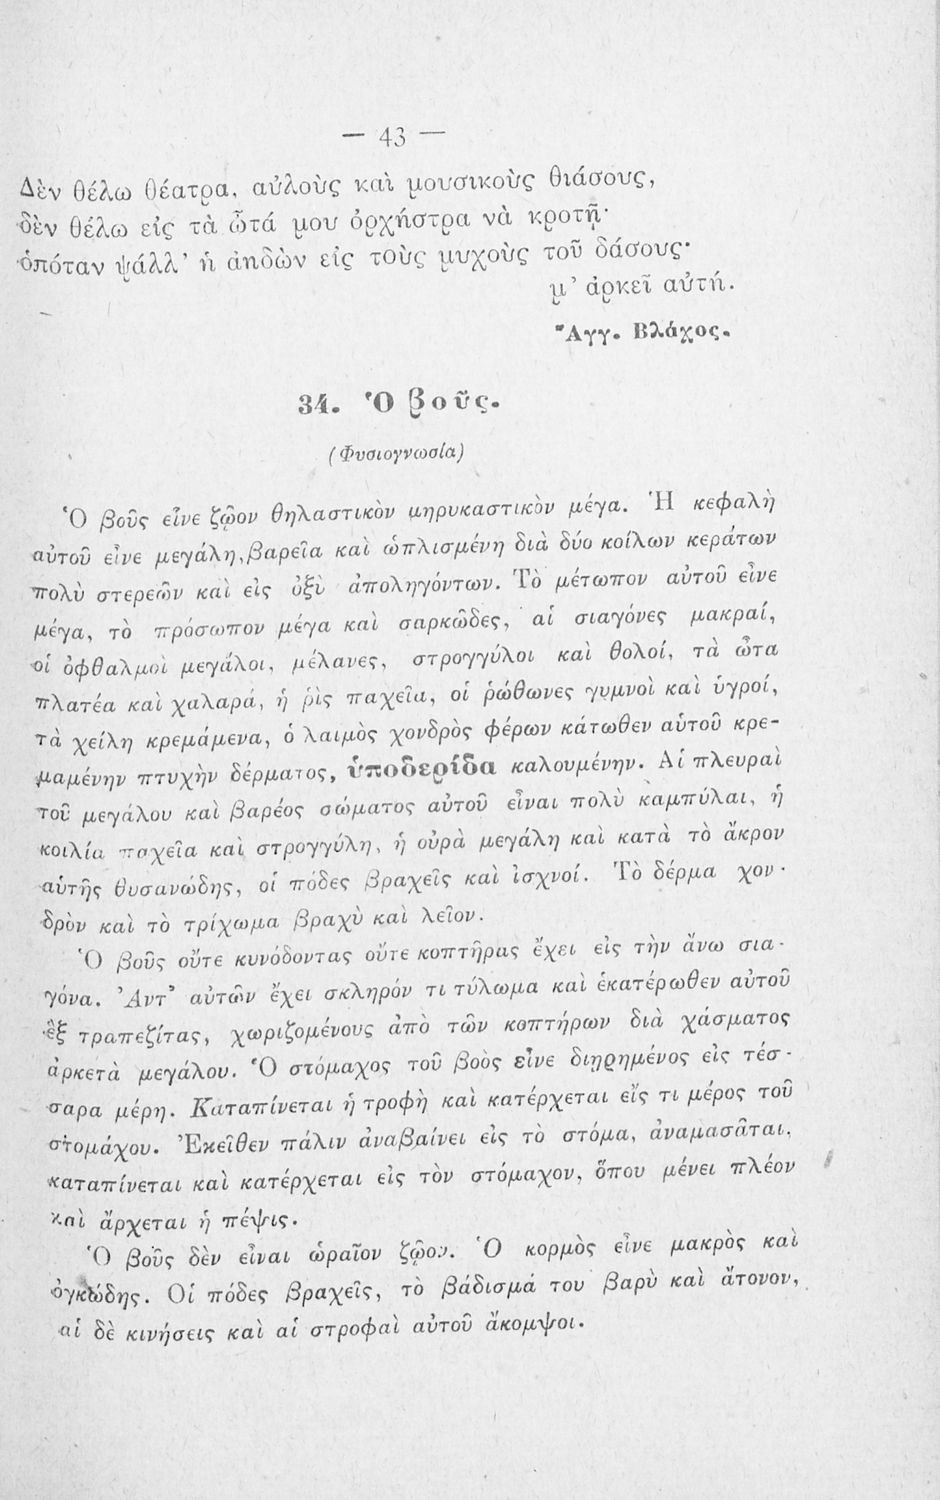 — 43 —
Δὲν θέλω θέατρα, αὐλοὺς καὶ μουσικοὺς θιάσους,
δὲν θέλω εἰς τὰ ὦτά μου ὀρχήστρα νὰ κροτῇ·
ὁπόταν ψάλλ' ἡ ἀηδὼν εἰς τοὺς μυχοὺς τοῦ δάσους·
μ' ἀρκεῖ αὐτή.
Ἄγγ. Βλάχος.
34. Ὁ βοῦς.
(Φυσιογνωσία)
Ὁ βοῦς εἶνε ζῷον θηλαστικὸν μηρυκαστικὸν μέγα. Ἡ κεφαλὴ
αὐτοῦ εἶνε μεγάλη, βαρεῖα καὶ ὡπλισμένη διὰ δύο κοίλων κεράτων
πολὺ στερεῶν καὶ εἰς ὀξὺ ἀποληγόντων. Τὸ μέτωπον αὐτοῦ εἶνε
μέγα, τὸ πρόσωπον μέγα καὶ σαρκῶδες, αἱ σιαγόνες μακραί,
οἱ ὀφθαλμοὶ μεγάλοι, μέλανες, στρογγύλοι καὶ θολοί, τὰ ὦτα
πλατέα καὶ χαλαρά, ἡ ῥὶς παχεῖα, οἱ ῥώθωνες γυμνοὶ καὶ ὑγροί,
τὰ χείλη κρεμάμενα, ὁ λαιμὸς χονδρὸς φέρων κάτωθεν αὐτοῦ κρε-
μαμένην πτυχὴν δέρματος, ὑποδερίδα καλουμένην. Αἱ πλευραὶ
τοῦ μεγάλου καὶ βαρέος σώματος αὐτοῦ εἶναι πολὺ καμπύλαι, ἡ
κοιλία παχεῖα καὶ στρογγύλη, ἡ οὐρὰ μεγάλη καὶ κατὰ τὸ ἄκρον
αὐτῆς θυσανώδης, οἱ πόδες βραχεῖς καὶ ἰσχνοί. Τὸ δέρμα χον-
δρὸν καὶ τὸ τρίχωμα βραχὺ καὶ λεῖον.
Ὁ βοῦς οὔτε κυνόδοντας οὔτε κοπτῆρας ἔχει εἰς τὴν ἄνω σια-
γόνα. Ἀντ' αὐτῶν ἔχει σκληρόν τι τύλωμα καὶ ἑκατέρωθεν αὐτοῦ
ἓξ τραπεζίτας, χωριζομένους ἀπὸ τῶν κοπτήρων διὰ χάσματος
ἀρκετὰ μεγάλου. Ὁ στόμαχος τοῦ βοὸς εἶνε διῃρημένος εἰς τέσ-
σαρα μέρη. Καταπίνεται ἡ τροφὴ καὶ κατέρχεται εἴς τι μέρος τοῦ
στομάχου. Ἐκεῖθεν πάλιν ἀναβαίνει εἰς τὸ στόμα, ἀναμασᾶται,
καταπίνεται καὶ κατέρχεται εἰς τὸν στόμαχον, ὅπου μένει πλέον
καὶ ἄρχεται ἡ πέψις.
Ὁ βοῦς δὲν εἶναι ὡραῖον ζῷον. Ὁ κορμὸς εἶνε μακρὸς καὶ
ὀγκώδης. Οἱ πόδες βραχεῖς, τὸ βάδισμά του βαρὺ καὶ ἄτονον,
αἱ δὲ κινήσεις καὶ αἱ στροφαὶ αὐτοῦ ἄκομψοι.